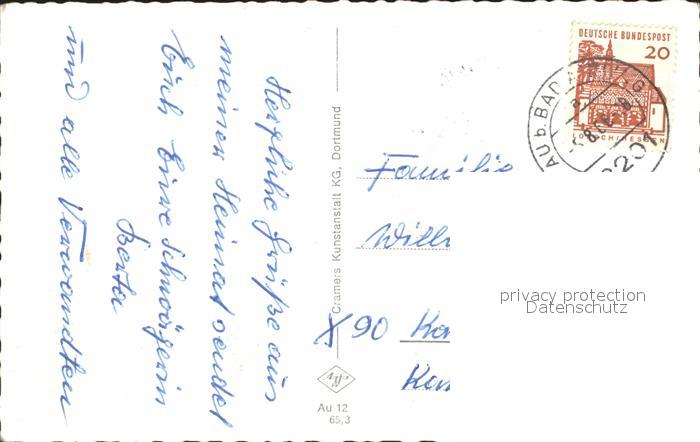 Herzliche Grüße aus
meiner Heimat sendet
Euch Eure Schwägerin
Berta
und alle Verwandten
Cramers Kunstanstalt KG, Dortmund
Au 12
65,3
DEUTSCHE BUNDESPOST
20
AU b. BAD
8201
Familie
X 90
privacy protection
Datenschutz